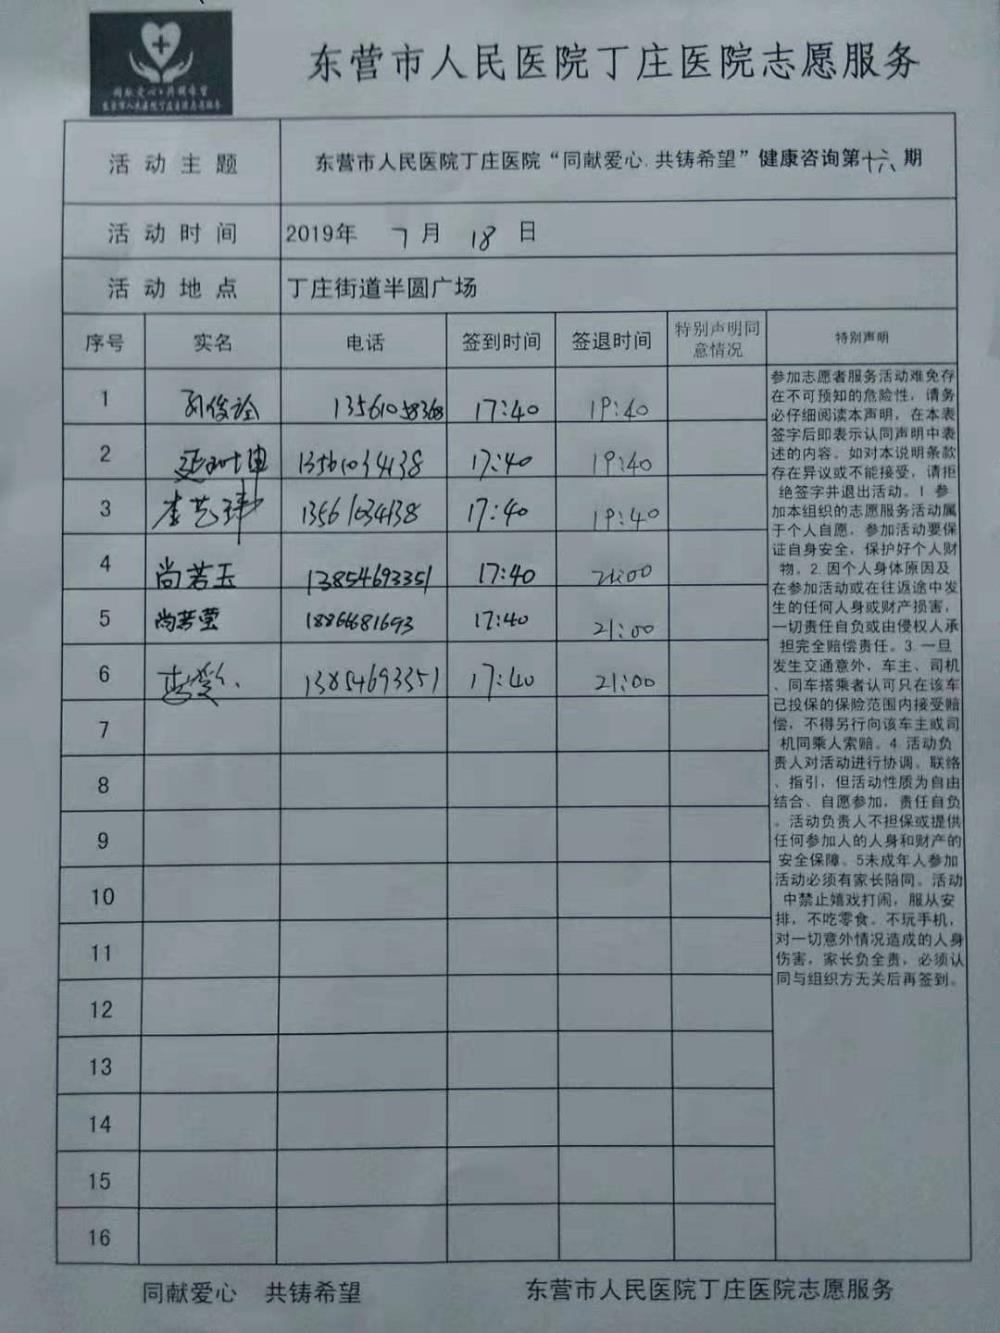 同献爱心·共铸希望
东营市人民医院丁庄医院志愿服务
东营市人民医院丁庄医院志愿服务
活动主题 东营市人民医院丁庄医院“同献爱心.共铸希望”健康咨询第十六期
活动时间 2019年 7月 18日
活动地点 丁庄街道半圆广场
序号 实名 电话 签到时间 签退时间 特别声明同意情况 特别声明
1 13561058368 17:40 19:40
2 13561034138 17:40 19:40
3 李艺玮 13561034138 17:40 19:40
4 尚若玉 13854693351 17:40 21:00
5 尚若莹 18866681693 17:40 21:00
6 13854693351 17:40 21:00
7
8
9
10
11
12
13
14
15
16
参加志愿者服务活动难免存
在不可预知的危险性，请务
必仔细阅读本声明，在本表
签字后即表示认同声明中表
述的内容。如对本说明条款
存在异议或不能接受，请拒
绝签字并退出活动。1 参
加本组织的志愿服务活动属
于个人自愿，参加活动要保
证自身安全，保护好个人财
物。2.因个人身体原因及
在参加活动或在往返途中发
生的任何人身或财产损害，
一切责任自负或由侵权人承
担完全赔偿责任。3.一旦
发生交通意外，车主、司机
、同车搭乘者认可只在该车
已投保的保险范围内接受赔
偿，不得另行向该车主或司
机同乘人索赔。4.活动负
责人对活动进行协调、联络
、指引，但活动性质为自由
结合、自愿参加，责任自负
。活动负责人不担保或提供
任何参加人的人身和财产的
安全保障。5未成年人参加
活动必须有家长陪同。活动
中禁止嬉戏打闹，服从安
排，不吃零食、不玩手机，
对一切意外情况造成的人身
伤害，家长负全责，必须认
同与组织方无关后再签到。
同献爱心 共铸希望 东营市人民医院丁庄医院志愿服务